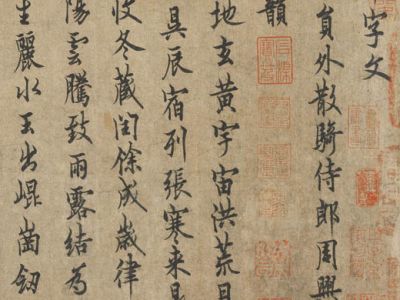 字文
員外散騎侍郎周興
韻
地玄黃宇宙洪荒日
昃辰宿列張寒來
收冬藏閏餘成歲律
陽雲騰致雨露結為
生麗水玉出崐崗釼